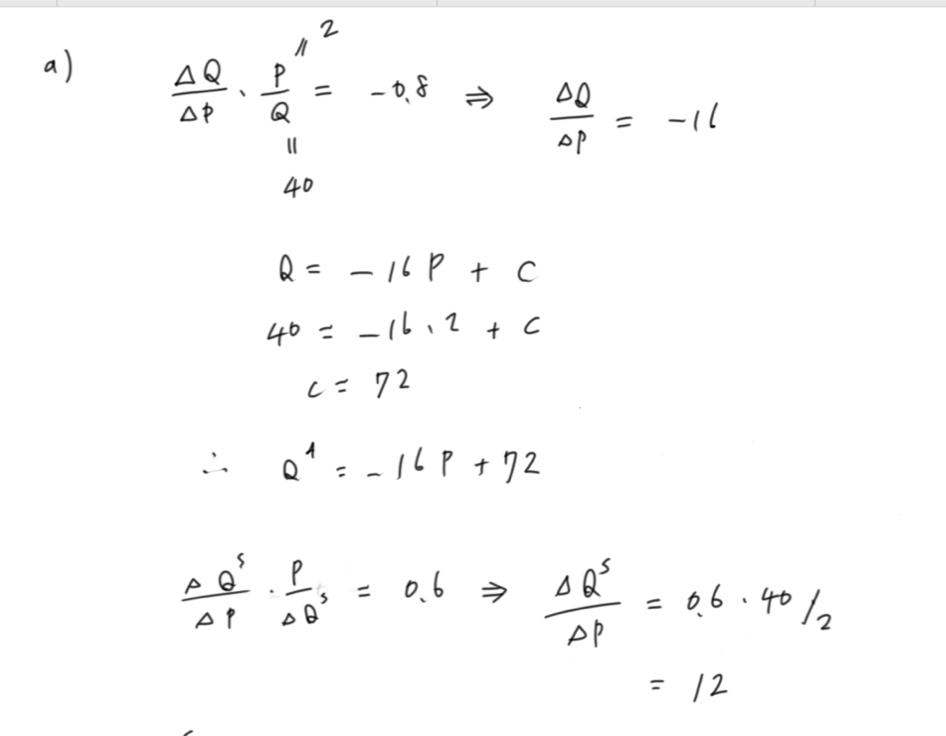 a) ΔQ/ΔP · P/Q = -0.8 ⇒ ΔQ/ΔP = -16
= 2
= 40
Q = -16P + C
40 = -16·2 + C
C = 72
∴ Q^d = -16P + 72
ΔQ^s/ΔP · P/ΔQ^s = 0.6 ⇒ ΔQ^s/ΔP = 0.6·40/2
= 12